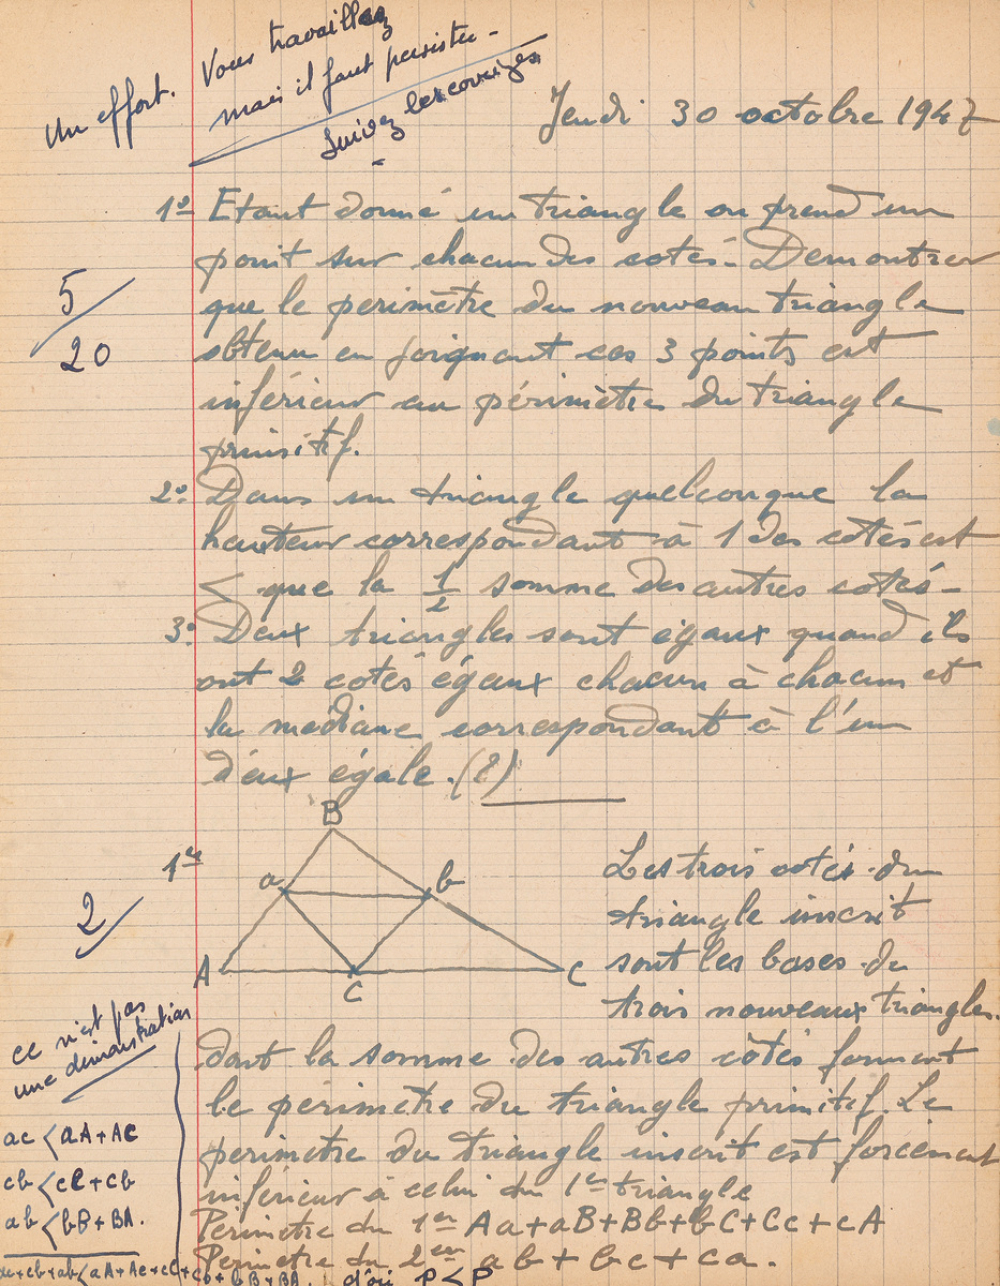 Un effort. Vous travaillez
mais il faut persister -
Suivez les corrigés
Jeudi 30 octobre 1947
1º Etant donné un triangle on prend un
point sur chacun des cotés. Demontrer
que le perimètre du nouveau triangle
obtenu en joignant ces 3 points est
inférieur au périmètre du triangle
primitif.
5/20
2º Dans un triangle quelconque la
hauteur correspondant à 1 des cotés est
< que la 1/2 somme des autres cotés -
3º Deux triangles sont égaux quand ils
ont 2 cotés égaux chacun à chacun et
la médiane correspondant à l'un
d'eux égale. (?)
1er
B
a
b
A
c
C
2
Les trois cotés du
triangle inscrit
sont les bases de
trois nouveaux triangles.
dont la somme des autres côtés forment
le périmètre du triangle primitif. Le
perimetre du triangle inscrit est forcément
inférieur à celui du 1er triangle
Périmetre du 1er Aa+aB+Bb+bC+Cc+cA
Perimetre du 2em ab+bc+ca.
ce n'est pas
une démonstration
ac < aA+Ac
cb < cC+Cb
ab < bB+BA.
ac+cb+ab < aA+Ac+cC+Cb+bB+BA. d'où P<P